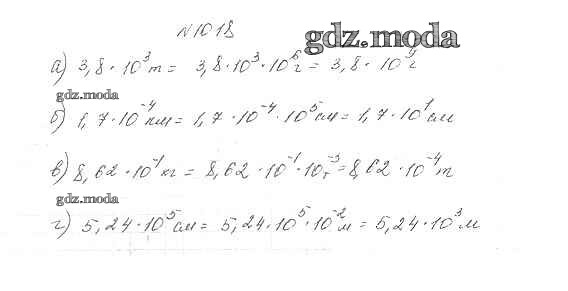 №1018
gdz.moda
а) 3,8 · 10³ т = 3,8 · 10³ · 10⁶ г = 3,8 · 10⁴ г
gdz.moda
б) 1,7 · 10⁻⁴ км = 1,7 · 10⁻⁴ · 10⁵ см = 1,7 · 10¹ см
в) 8,62 · 10⁻¹ кг = 8,62 · 10⁻¹ · 10⁻³ т = 8,62 · 10⁻⁴ т
gdz.moda
г) 5,24 · 10⁵ см = 5,24 · 10⁵ · 10⁻² м = 5,24 · 10³ м